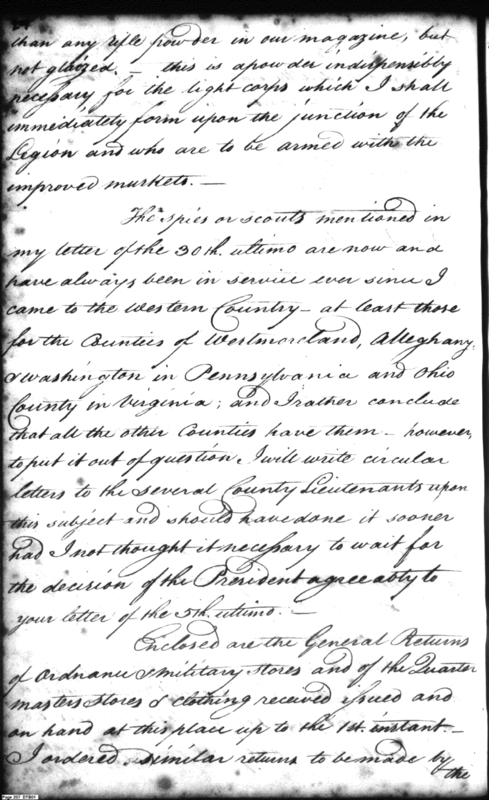 than any rifle powder in our magazine, but
not glaized. — this is a powder indispensibly
necessary, for the light corps which I shall
immediately form upon the junction of the
Legion and who are to be armed with the
improved muskets. —
The spies or scouts mentioned in
my letter of the 30th. ultimo are now and
have always been in service ever since I
came to the Western Country — at least those
for the Counties of Westmoreland, Alleghany,
& Washington in Pennsylvania and Ohio
County in Virginia; and I rather conclude
that all the other Counties have them — however,
to put it out of question I will write circular
letters to the several County Lieutenants upon
this subject and should have done it sooner
had I not thought it necessary to wait for
the decision of the President agreeably to
your letter of the 5th. ultimo. —
Enclosed are the General Returns
of Ordnance & military stores and of the Quarter
masters stores & clothing received issued and
on hand at this place up to the 1st. instant. —
I ordered similar returns to be made by
the